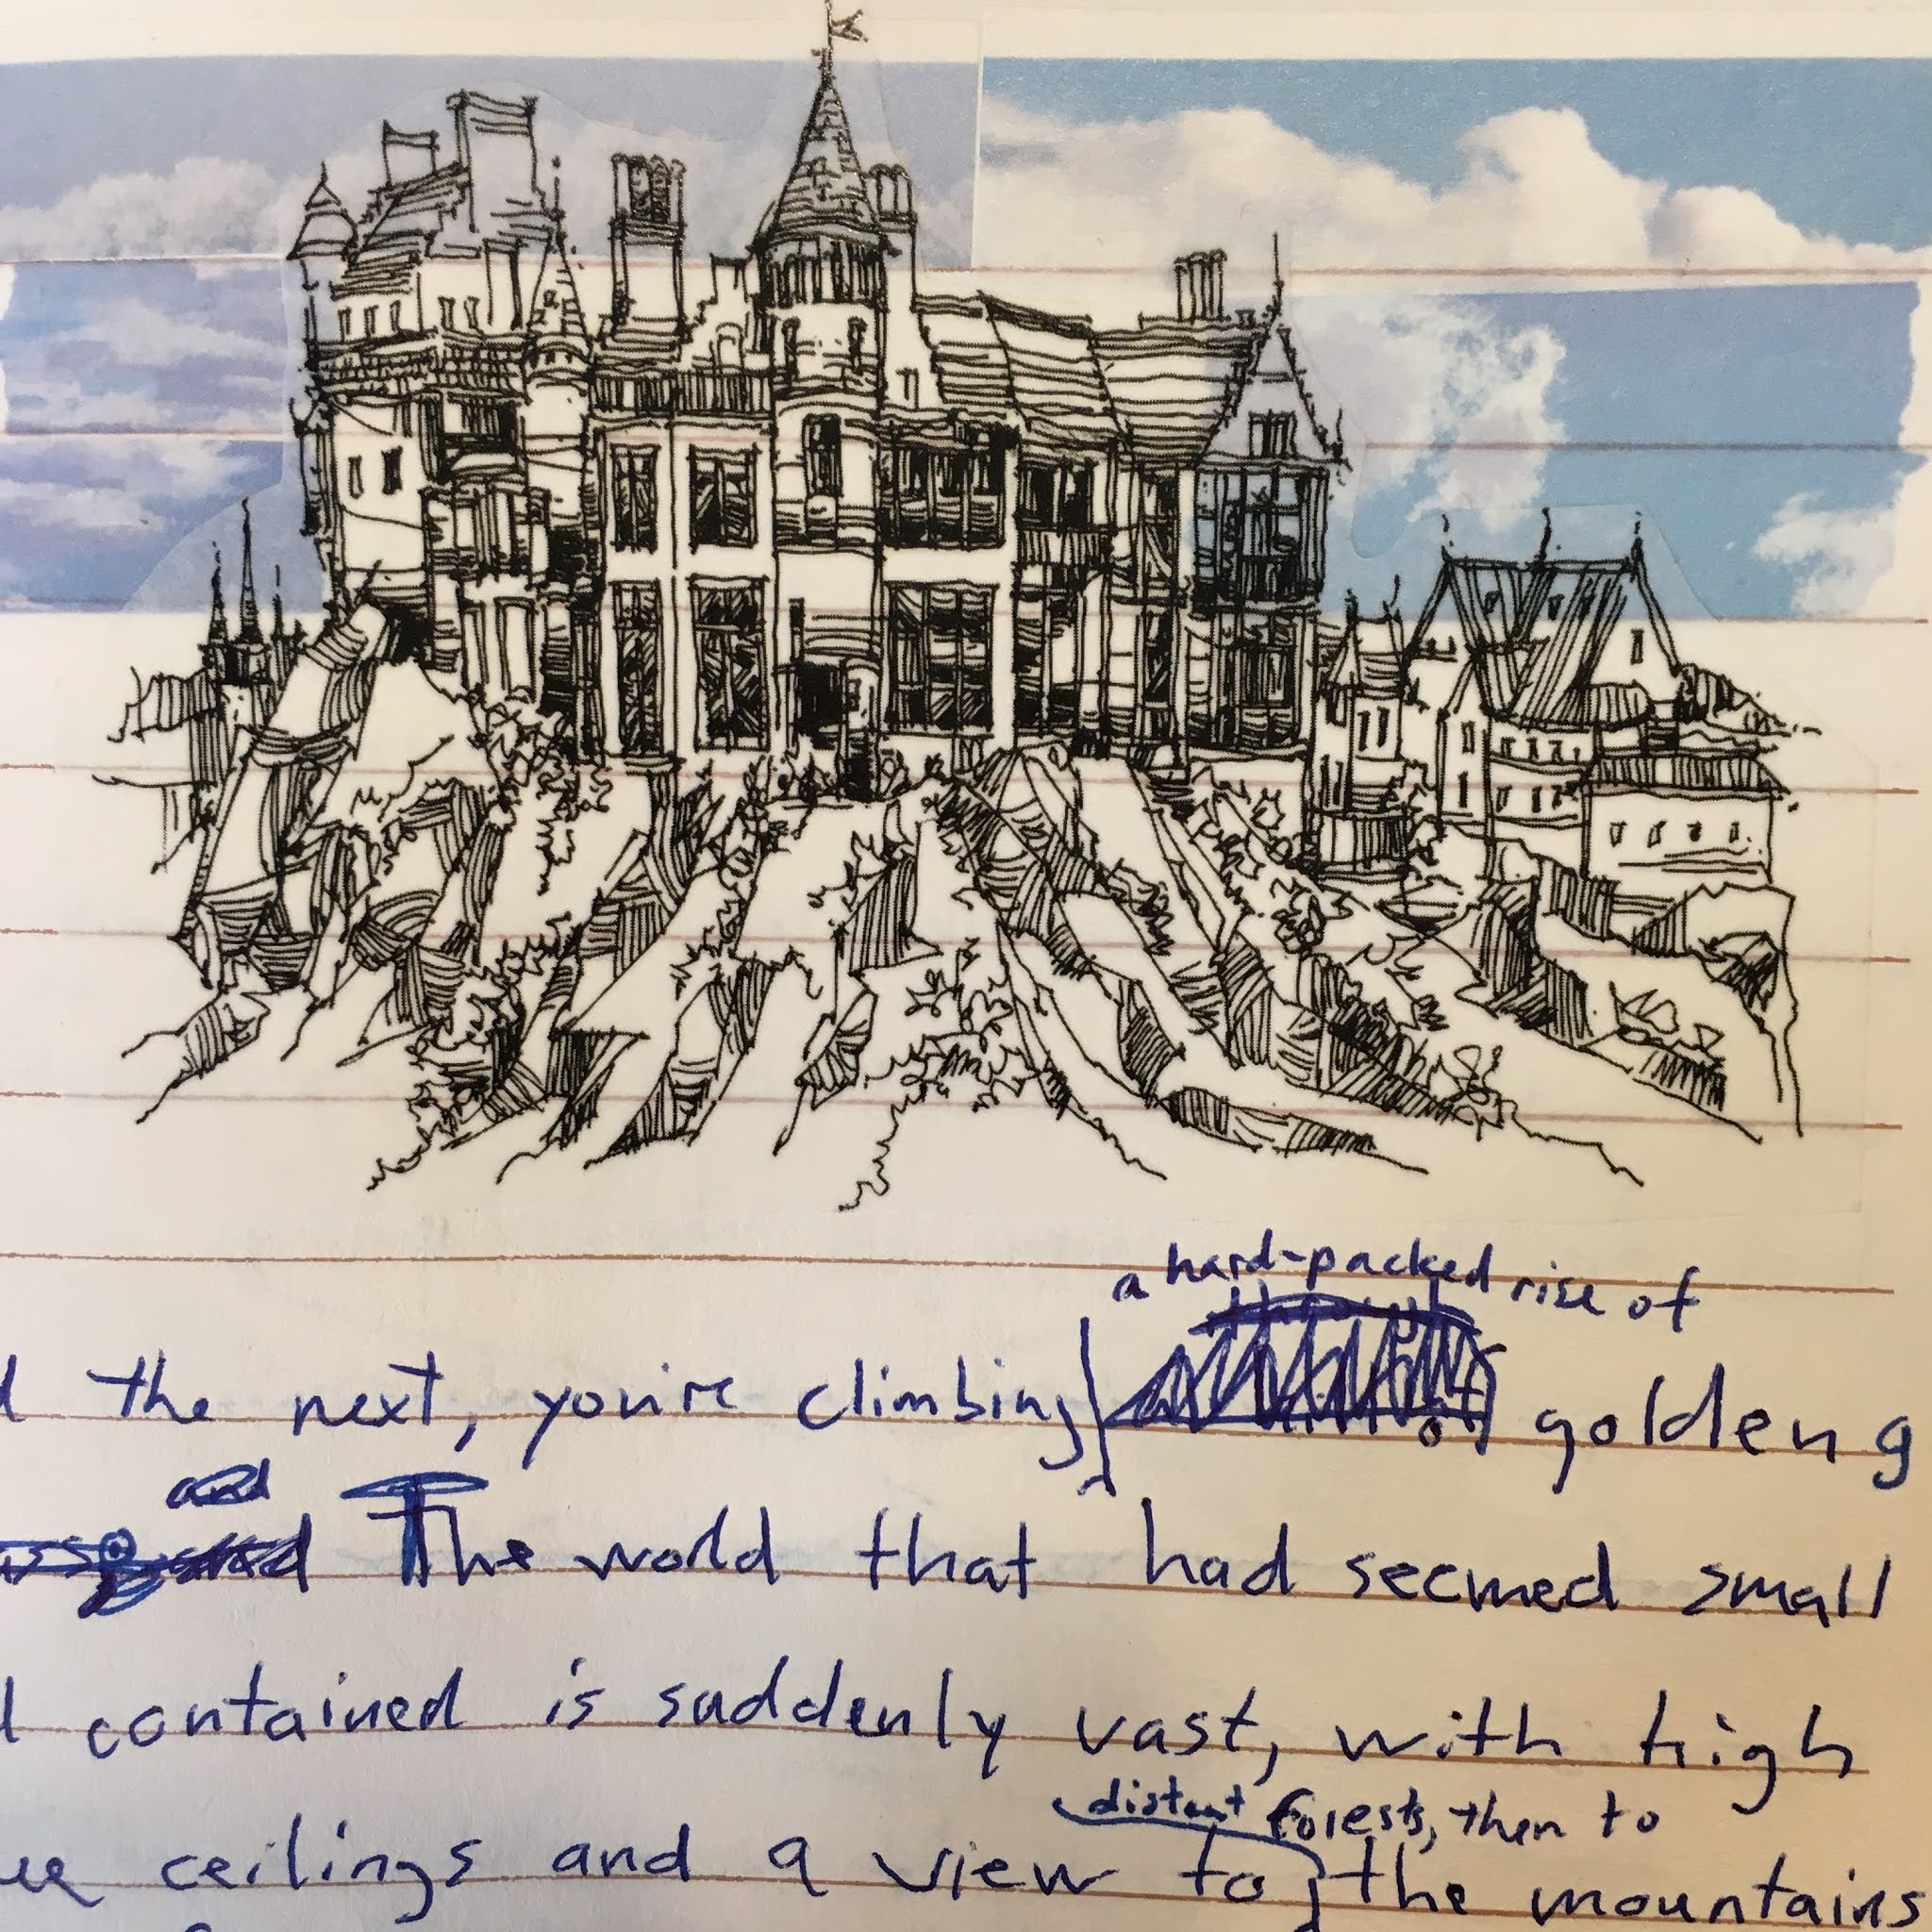 a hard-packed rise of
the next, you're climbing of golden g
and
The world that had seemed small
contained is suddenly vast, with high
distant forests, then to
ceilings and a view to the mountains